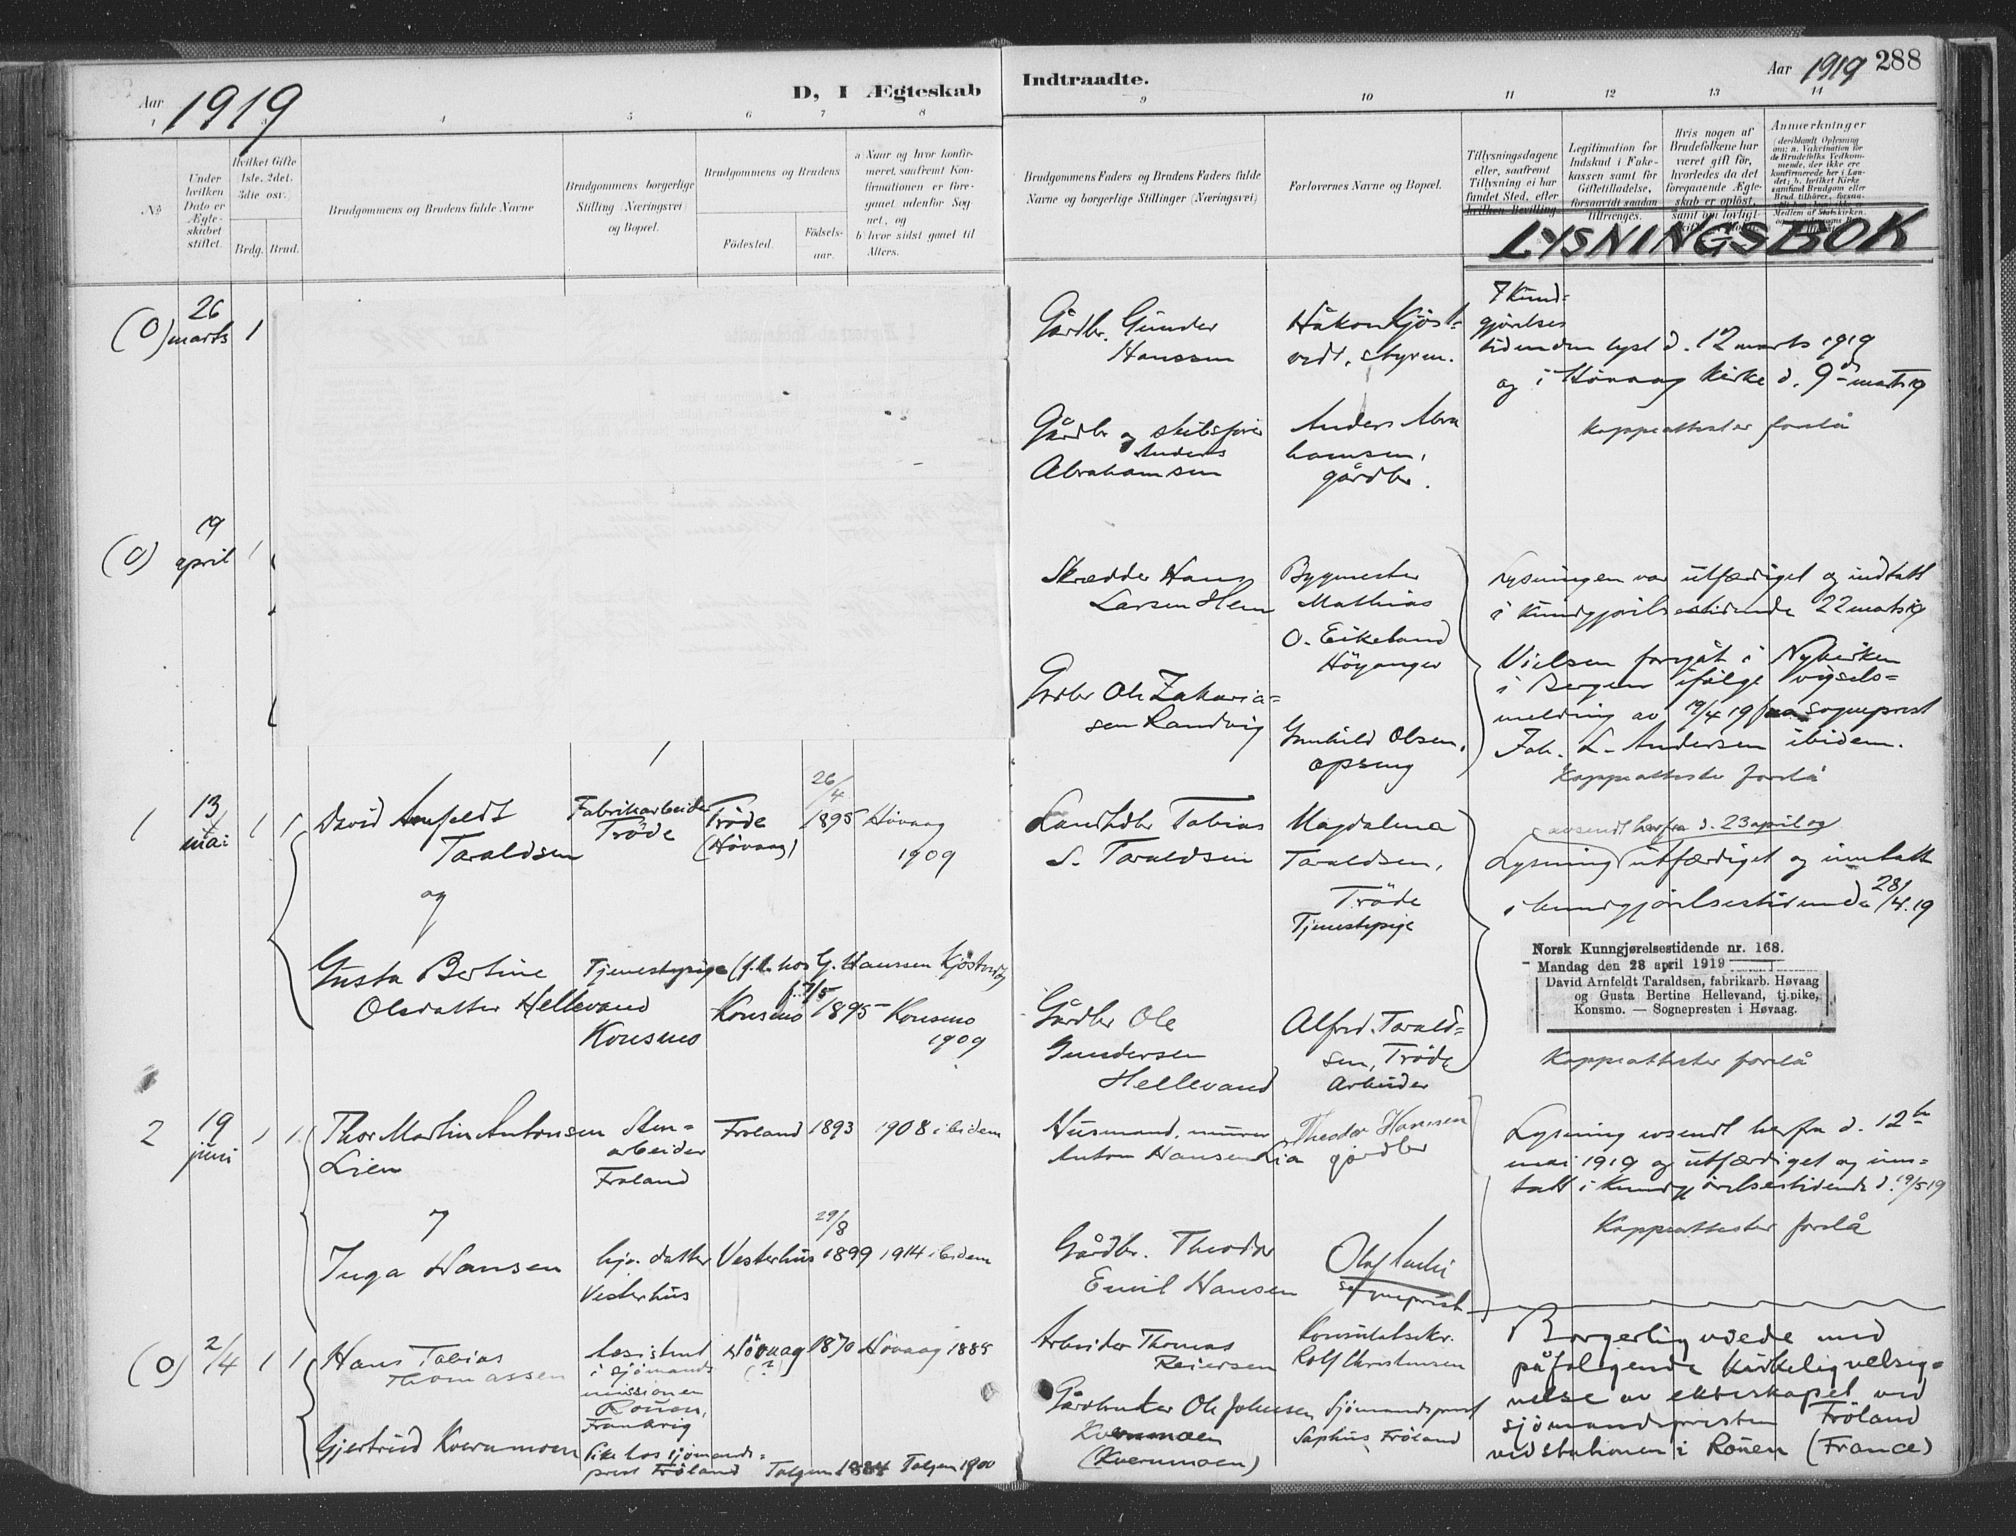 Aar 1919
D, I Ægteskab Indtraadte.
Aar 1919 288
1 4 5 6 7 8 9 10 11 12 13 14
No.
Under hvilken Dato er Ægteskabet stiftet.
Hvilket Gifte 1ste, 2det, 3die osv.
Brdg. Brud.
Brudgommens og Brudens fulde Navne
Brudgommens borgerlige Stilling (Næringsvei) og Bopæl.
Brudgommens og Brudens
Fødested. Fødselsaar.
a Naar og hvor konfirmeret, saafremt Konfirmationen er foregaaet udenfor Sognet, og
b) hvor sidst gaaet til Alters.
Brudgommens Faders og Brudens Faders fulde Navne og borgerlige Stillinger (Næringsvei)
Forlovernes Navne og Bopæl.
Tillysningsdagene eller, saafremt Tillysning ei har fundet Sted, efter hvilken Bevilling
Legitimation for Indskud i Enkekassen samt for Giftetilladelse, forsaavidt saadan tiltrænges.
Hvis nogen af Brudefolkene har været gift før, hvorledes da det foregaaende Ægteskab er opløst,
Anmærkninger
LYSNINGSBOK
(0) 26 marts 1
Gårdbr. Gunder
Hanssen
Håkon Kjöst=
vedt, styrm.
I Kund=
gjörelses
tidenden lyst d. 12 marts 1919
og i Høvaag kirke d. 9de marts 19
Gårdbr og skibsfører
Anders
Abrahamsen
Anders Abra
hamsen,
gårdbr.
Koppeattester foreslå
(0) 19 april 1
Skrædder Hans
Larsen Hem
Bygmester
Mathias
O. Eikeland
Höyanger
Lysningen var utfærdiget og indtatt
i Kundgjörelsestidende 22 marts 19
Vielsen foregåt i Nykirken
i Bergen ifölge vigsels=
melding av 19/4 19 fra sogneprest
Joh. L. Andersen ibidem.
Koppeattester foreslå
Gårdbr Ole Zakaria=
sen Randvig
Gunhild Olsen,
1 13 mai 1 1
David Arnfeldt
Taraldsen
og
Fabrikarbeider
Tröde
Tröde
(Høvaag)
26/4
1895
Høvaag
1909
Landhdlr Tobias
S. Taraldsen
Magdalena
Taraldsen,
Tröde
Tjenestepige
avsendt herfra d. 23 april og
Lysning utfærdiget og inntatt
i kundgjörelsestidende 28/4. 19
Norsk Kunngjørelsestidende nr. 168.
Mandag den 28 april 1919
David Arnfeldt Taraldsen, fabrikarb. Høvaag
og Gusta Bertine Hellevand, tj.pike,
Konsmo. — Sognepresten i Høvaag.
Gusta Bertine
Olsdatter Hellevand
Tjenestepige (f.t. hos G. Hanssen Kjöstvedt)
Konsmo
Konsmo
f. 7/5
1895
Konsmo
1909
Gårdbr Ole
Gundersen
Hellevand
Alfred Tarald=
sen, Tröde
Arbeider
Koppeattester foreslå
2 19 juni 1 1
Thor Martin Antonsen
Lien
og
Sten=
arbeider
Froland
Froland 1893 1908 ibidem
Husmand, murer
Anton Hansen Lia
Theodor Hansen
gårdbr
Lysning avsendt herfra d. 12te
mai 1919 og utfærdiget og inn=
tatt i Kundgjörelsestidende d. 19/5 19
Koppeattester foreslå
Inga Hansen
hjv. datter
Vesterhus
Vesterhus
29/8
1899 1914 ibidem
Gårdbr. Theodor
Emil Hansen
Olaf
sogneprest
(0) 2/4 1 1
Hans Tobias
Thomassen
Assistent
i sjömands
missionen
Rouen,
Frankrig
Høvaag
(?)
1870 Høvaag 1885
Arbeider Thomas
Reiersen
Konsulatsekr.
Rolf Christensen
Borgerlig viede med
påfølgende kirkelig velsig=
nelse av ekteskapet ved
sjömandspresten Fröland
ved stationen i Rouen (France)
Gjertrud Kvernmoen
Pike hos sjömands=
prest Fröland
Tolgen 1884 Tolgen 1900
Gårdbruker Ole Johnsen
Kvernmoen
(Kvernmoen)
Sjömandsprest
Saphus Fröland